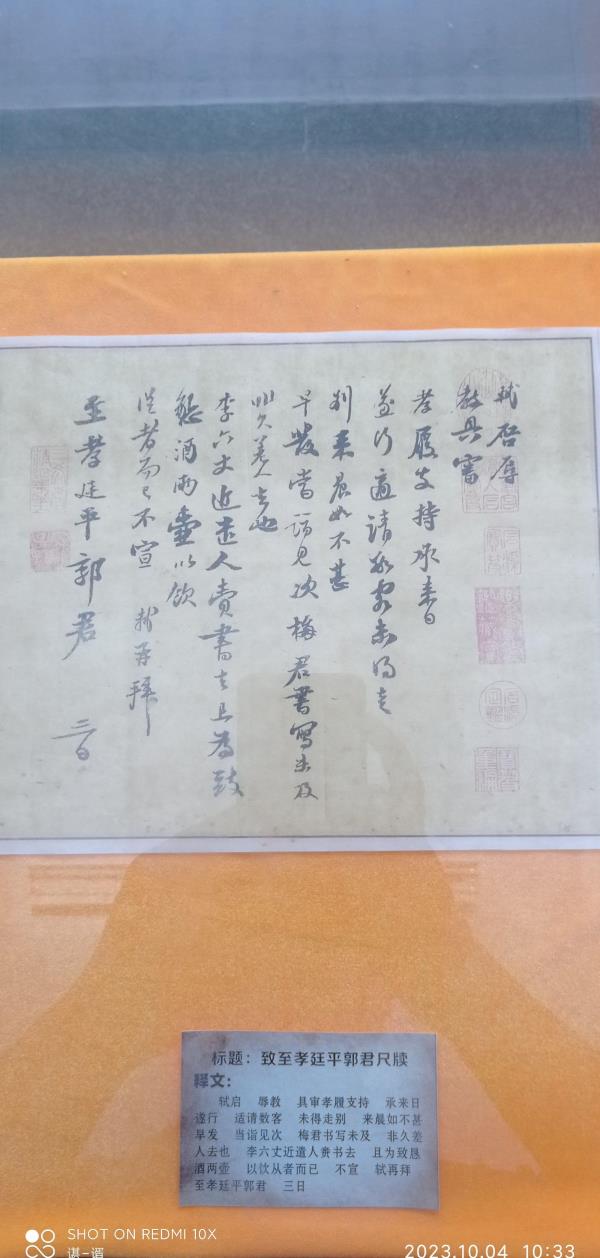 軾啓辱
教具審
孝履支持承来日
遂行適請數客未得走
别来晨如不甚
早發當詣見次梅君書寫未及
非久差人去也
李六丈近遣人賫書去且為致
懇酒兩壷以飲
從者而已不宣 軾再拜
至孝廷平郭君 三日
标题：致至孝廷平郭君尺牍
释文：
轼启 辱教 具审孝履支持 承来日
遂行 适请数客 未得走别 来晨如不甚
早发 当诣见次 梅君书写未及 非久差
人去也 李六丈近遣人赍书去 且为致恳
酒两壶 以饮从者而已 不宣 轼再拜
至孝廷平郭君 三日
SHOT ON REDMI 10X
谌-谓
2023.10.04 10:33